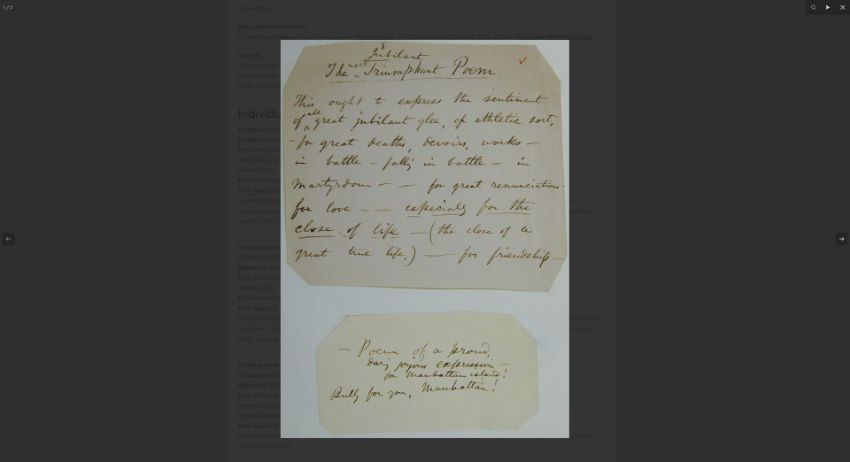 1/2
Jubilant
The most Triumphant Poem.
This ought to express the sentiment
of all great jubilant glee, of athletic sort,
—for great deaths, devoirs, works —
in battle — falling in battle — in
martyrdom — — for great renunciations
for love — — especially for the
close of life — (the close of a
great true life,) — for friendship —
— Poem of a proud,
daring joyous expression —
for Manhattan island!
Bully for you, Manhattan!